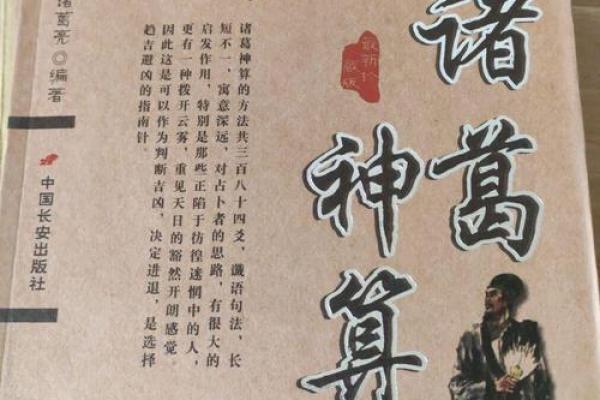 诸葛
神算
最新珍
藏版
诸葛神算的方法共三百八十四爻，谶语句法，长
短不一，寓意深远，对占卜者的思路，有很大的
启发作用，特别是那些正陷于彷徨迷惘中的人，
更有一种拨开云雾，重见天日的豁然开朗感觉。
因此这是可以作为判断吉凶，决定进退，是选择
趋吉避凶的指南针。
诸葛亮◎编著
中国长安出版社